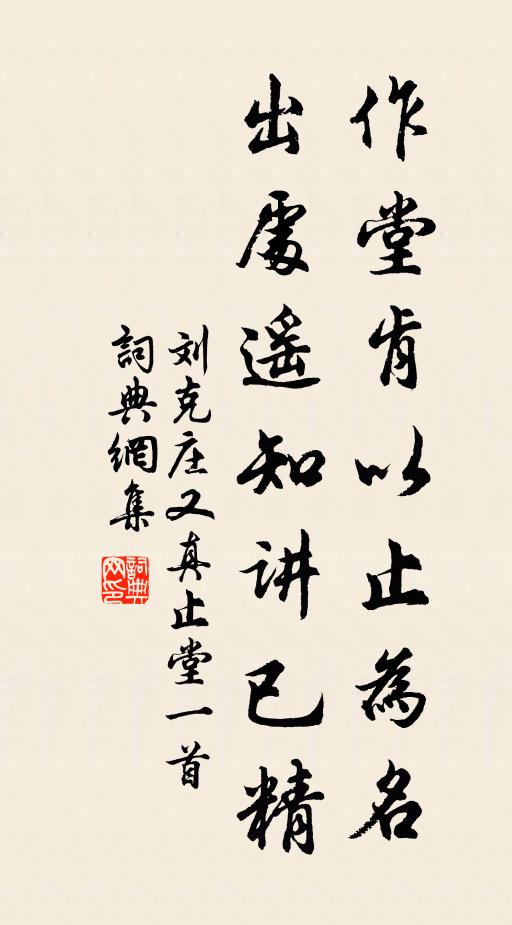 作堂肯以止為名
出處遥知讲已精
刘克庄又真止堂一首
詞典網集
詞典网印